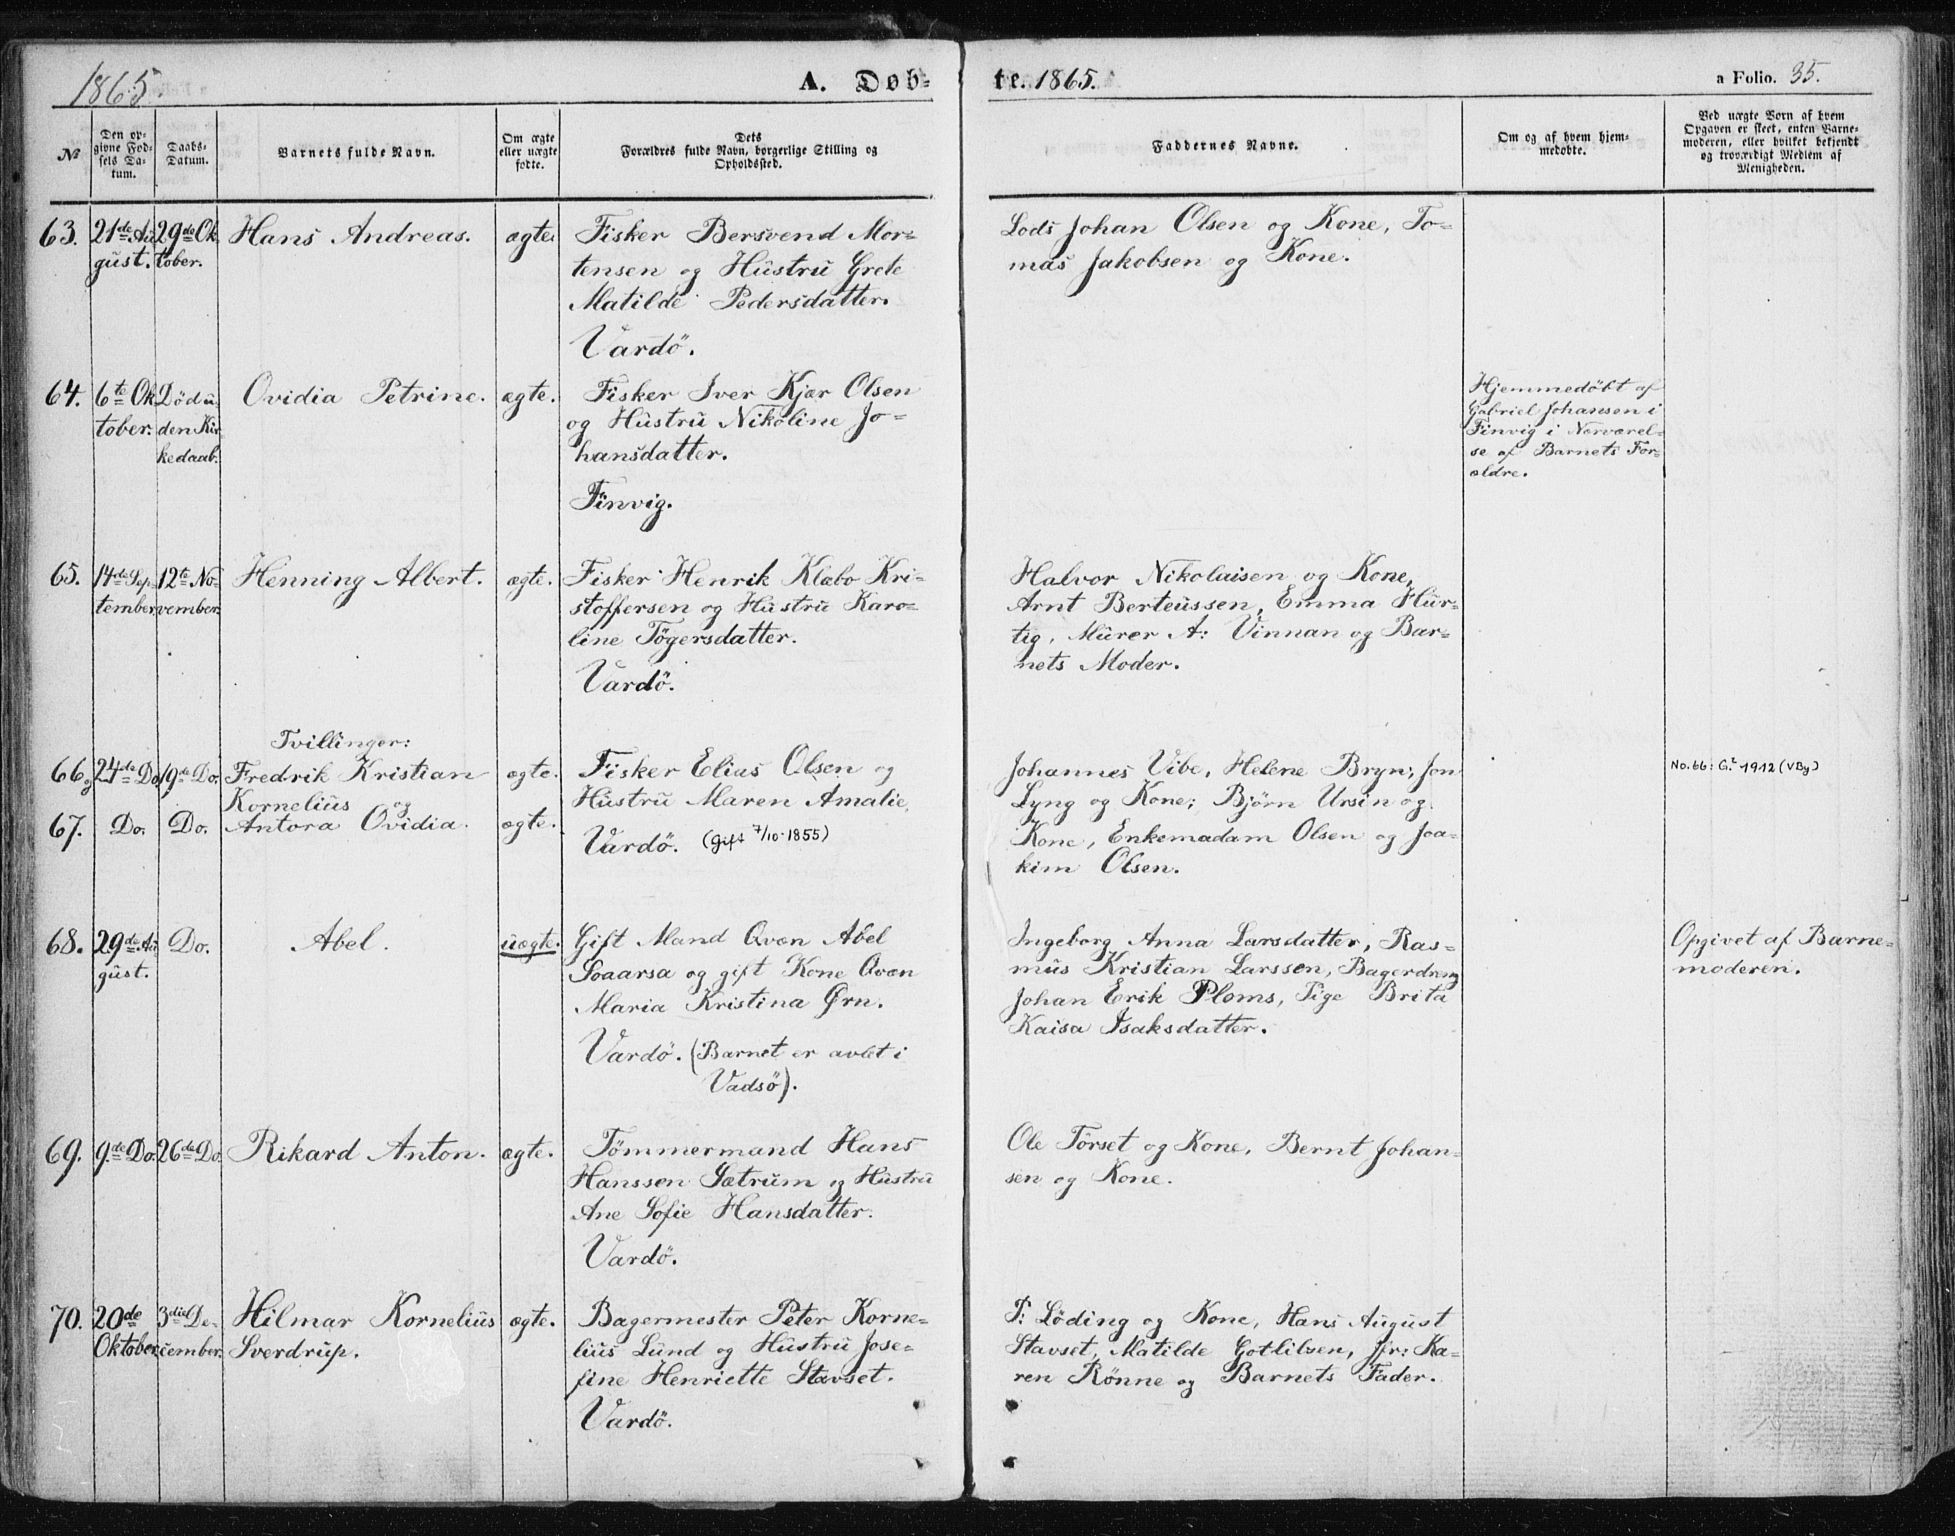 1865.
A. Døb-
te. 1865.
a Folio. 35.
№
Den op-
givne Fød-
sels Da-
tum.
Daabs-
Datum.
Barnets fulde Navn.
Om ægte
eller uægte
fødte.
Dets
Forældres fulde Navn, borgerlige Stilling og
Opholdssted.
Faddernes Navne.
Om og af hvem hjem-
medøbte.
Ved uægte Børn af hvem
Opgaven er skeet, enten Barne-
moderen, eller hvilket bekjendt
og troværdigt Medlem af
Menigheden.
63.
21de Au
gust.
29de Ok
tober.
Hans Andreas.
ægte.
Fisker Bersvend Mor-
tensen og Hustru Grete
Matilde Pedersdatter.
Vardö.
Lods Johan Olsen og Kone, To-
mas Jakobsen og Kone.
64.
6te Ok
tober.
Død u-
den Kir
kedaab.
Ovidia Petrine.
ægte.
Fisker Iver Kjær Olsen
og Hustru Nikoline Jo-
hansdatter.
Finvig.
Hjemmedöbt af
Gabriel Johansen i
Finvig i Nærværel-
se af Barnets For-
ældre.
65.
14de Sep
tember
12te No-
vember.
Henning Albert.
ægte.
Fisker Henrik Klæbo Kri-
stoffersen og Hustru Karo-
line Tögersdatter.
Vardö.
Halvor Nikolaisen og Kone,
Arnt Berteussen, Emma Hur-
tig, Murer A: Vinnan og Bar-
nets Moder.
Tvillinger:
66 og
24de Do.
19de Do.
Fredrik Kristian
Kornelius og
ægte.
67.
Do.
Do.
Antora Ovidia.
ægte.
Fisker Elias Olsen og
Hustru Maren Amalie.
Vardö. (Gift 7/10-1855)
Johannes Vibe, Helene Bryn, Jon
Lyng og Kone; Bjørn Ursin og
Kone, Enkemadam Olsen og Joa-
kim Olsen.
No. 66: G.t 1912 (VBy)
68.
29de Au
gust.
Do.
Abel.
uægte.
Gift Mand Qvæn Abel
Soaarsa og gift Kone Qvæn
Maria Kristina Ørn.
Vardö. (Barnet er avlet i
Vadsö).
Ingeborg Anna Larsdatter, Ras-
mus Kristian Larssen, Bagerdreng
Johan Erik Ploms, Pige Brita
Kaisa Isaksdatter.
Opgivet af Barne-
moderen.
69.
9de Do.
26de Do.
Rikard Anton.
ægte.
Tömmermand Hans
Hanssen Sætrum og Hustru
Ane Sofie Hansdatter.
Vardö.
Ole Törset og Kone, Bernt Johan-
sen og Kone.
70.
20de
Oktober.
3die De-
cember.
Hilmar Kornelius
Sverdrup.
ægte.
Bagermester Peter Korne-
lius Lund og Hustru Jose-
fine Henriette Stavset.
Vardö.
P: Löding og Kone, Hans August
Stavset, Matilde Gotlibsen, Jfr: Ka-
ren Rönne og Barnets Fader.